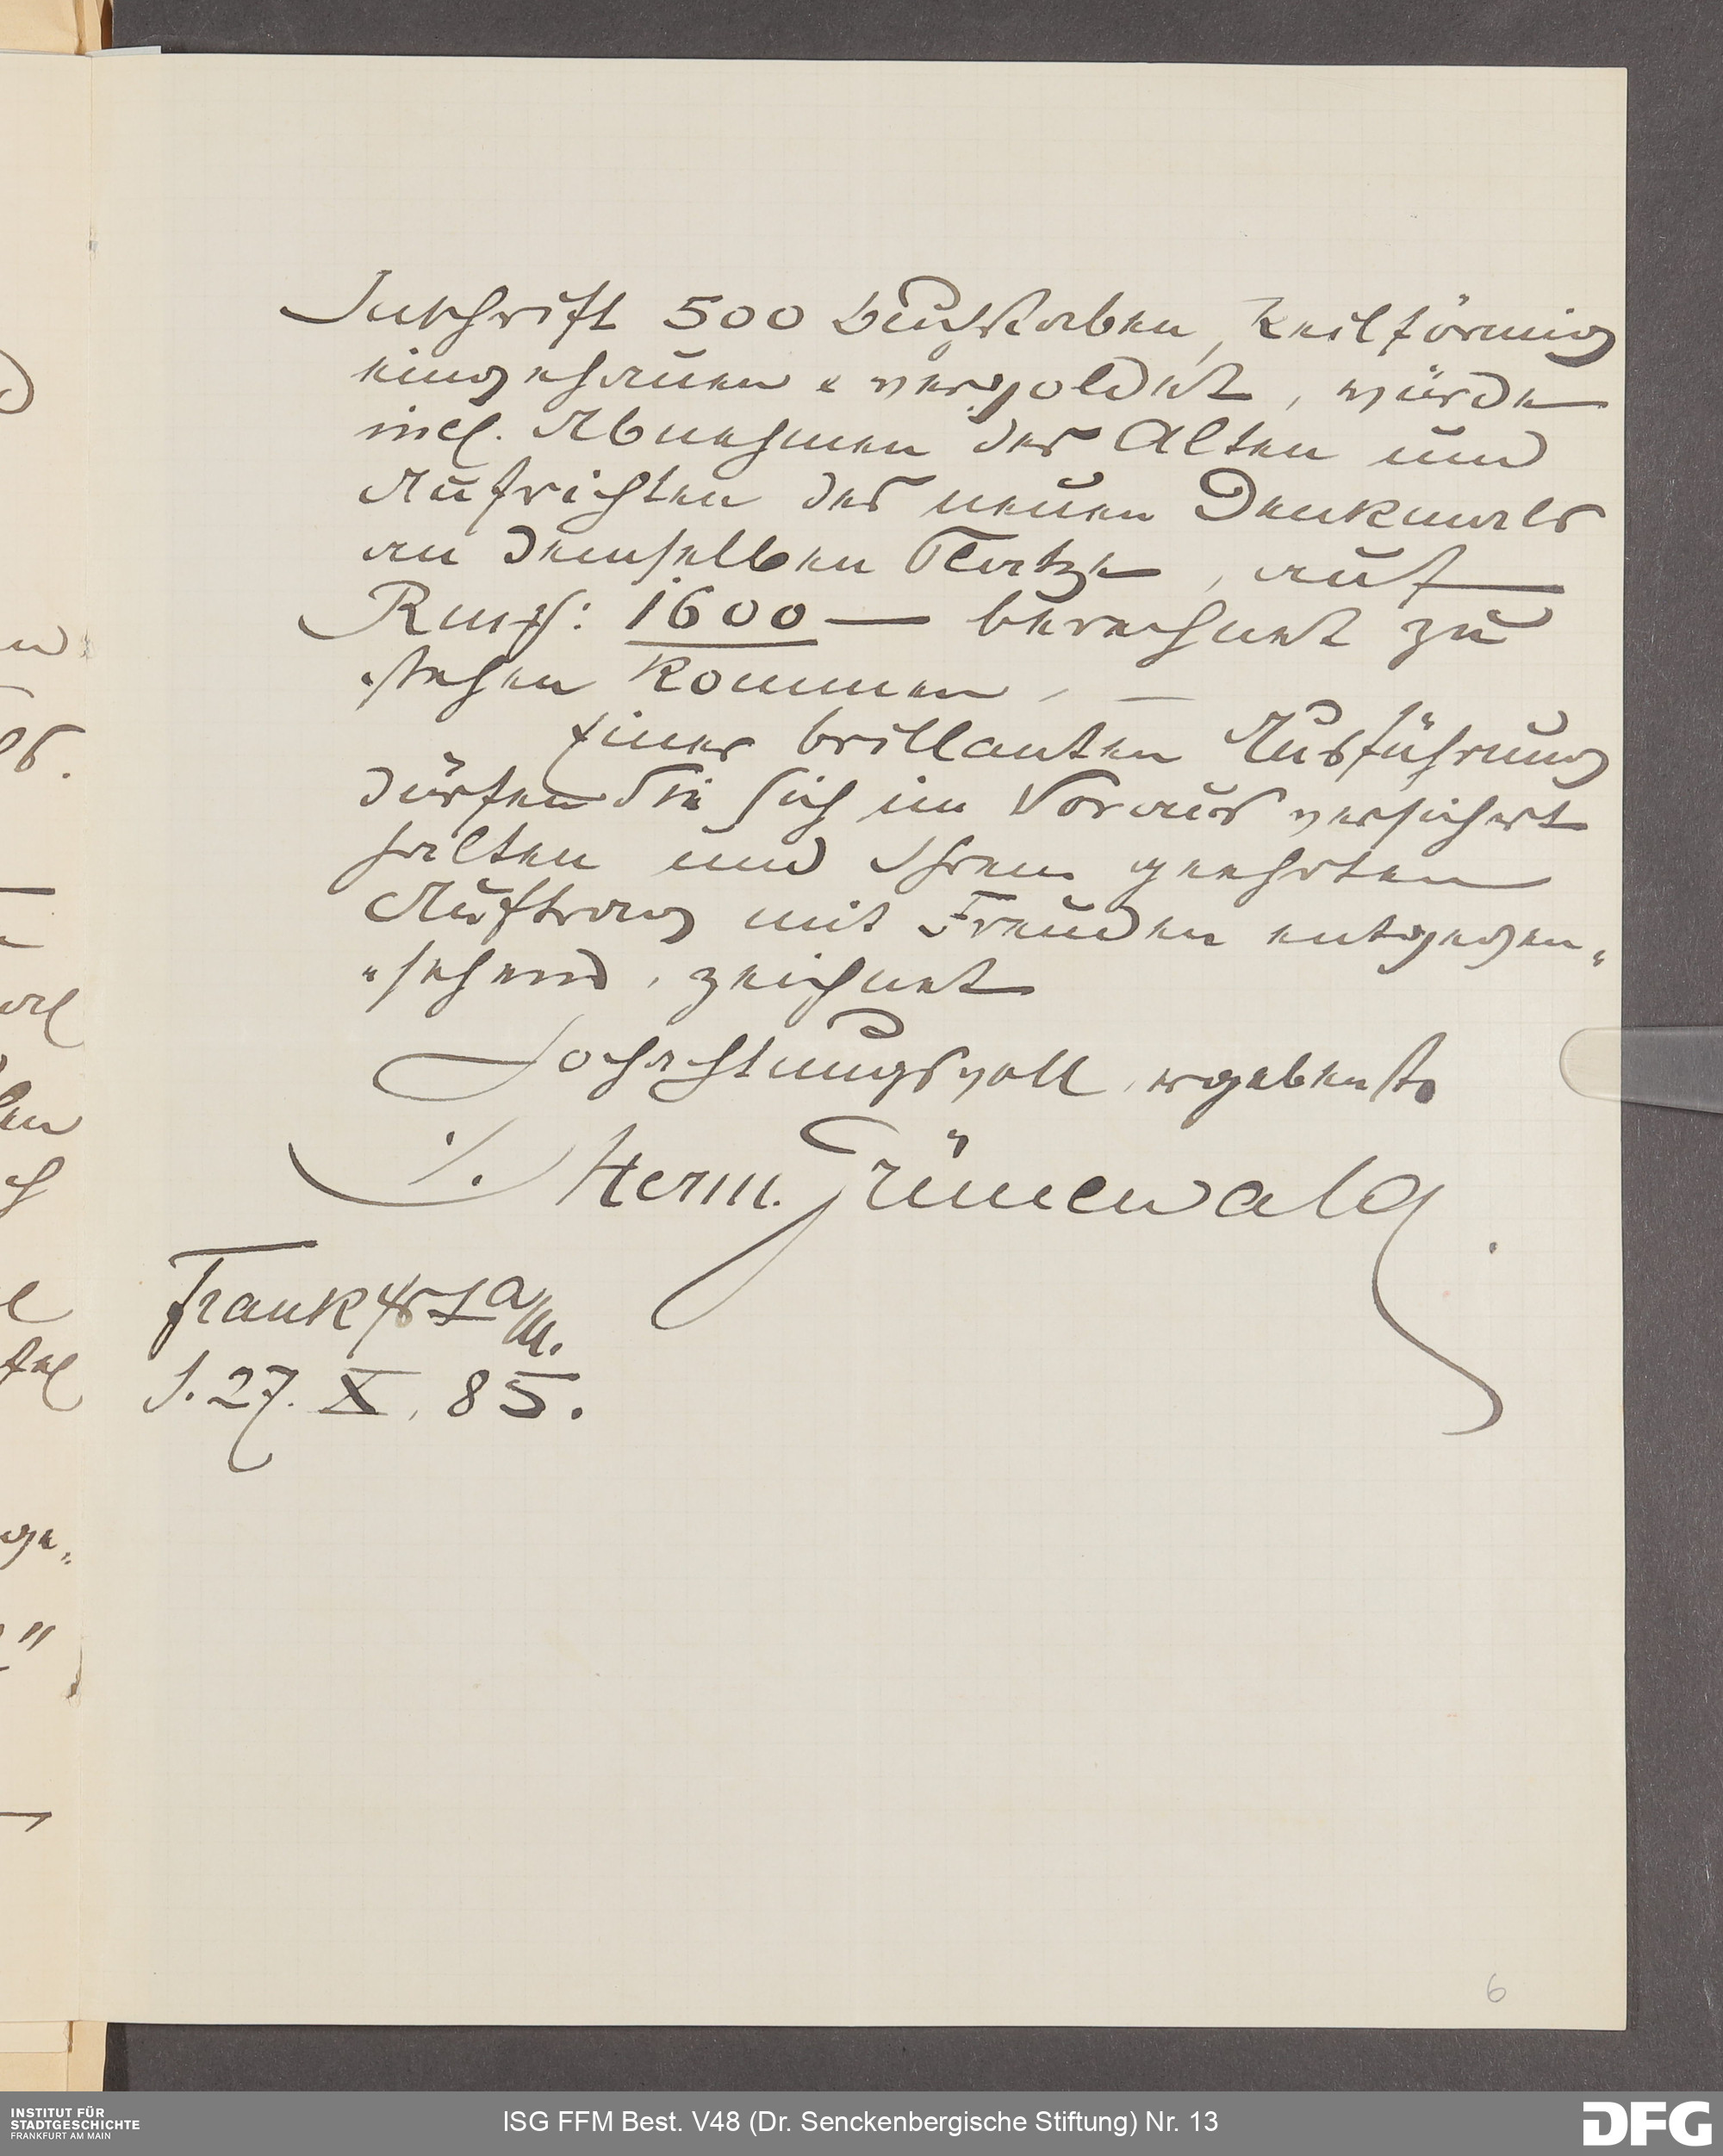 Inschrift 500 Buchstaben, keilförmig
eingehauen & vergoldet, würde
incl. Abnehmen des Alten und
Aufrichten des neuen Denkmals
an demselben Platze, auf
Rmk: 1600 — berechnet zu
stehen kommen. —
Einer brillanten Ausführung
dürfen Sie sich im Voraus versichert
halten und Ihrem geehrten
Auftrag mit Freuden entgegen„
„sehend, zeichnet
Hochachtungsvoll, ergebenst
Herm. Grünewald.
Frankfurt a/M.
d. 27. X. 85.
6
INSTITUT FÜR
STADTGESCHICHTE
FRANKFURT AM MAIN
ISG FFM Best. V48 (Dr. Senckenbergische Stiftung) Nr. 13
DFG